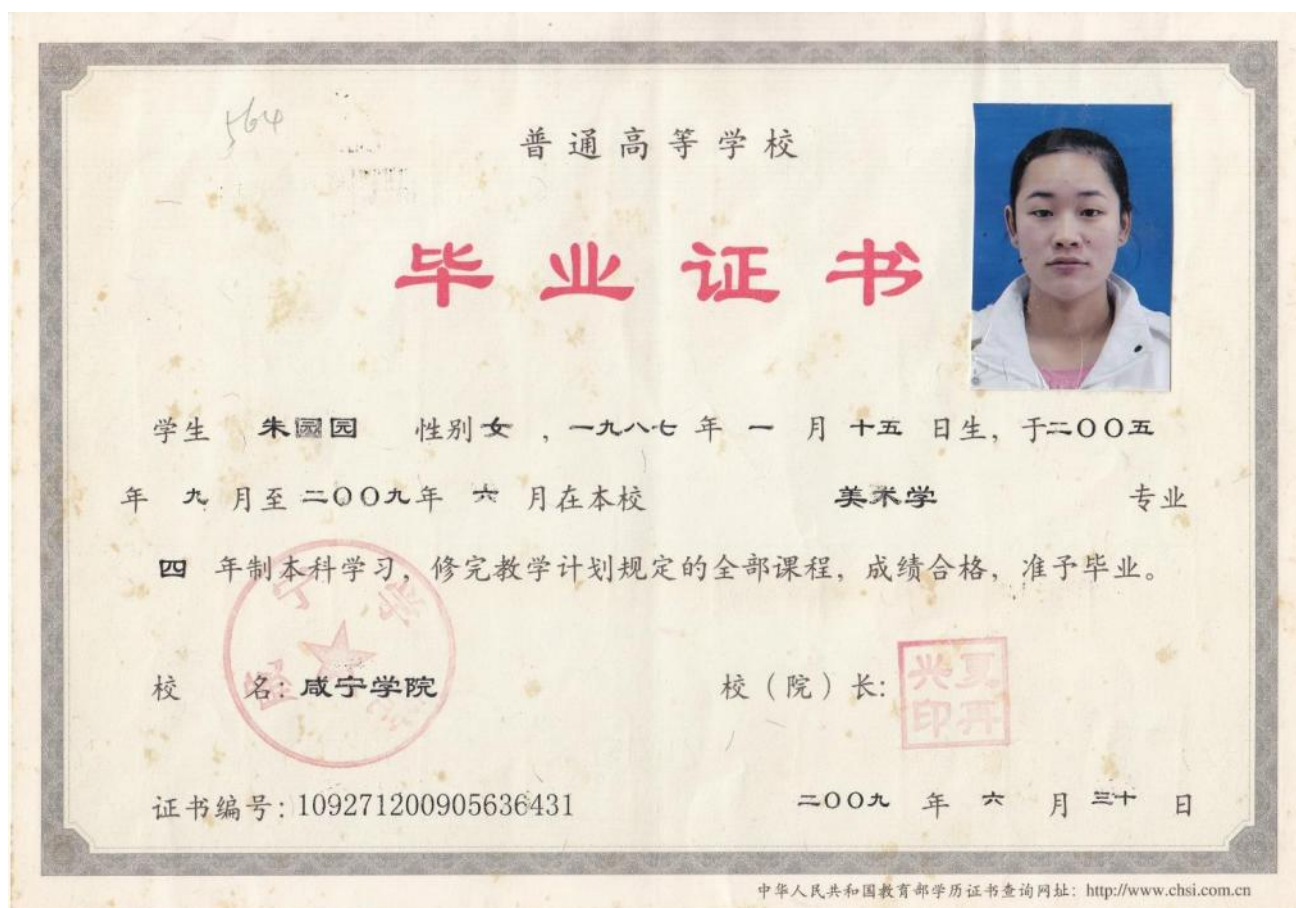 564
普通高等学校
毕业证书
学生 朱园园 性别 女 ,一九八七 年 一 月 十五 日生, 于二〇〇五
年 九 月至 二〇〇九年 六 月在本校 美术学 专业
四 年制本科学习, 修完教学计划规定的全部课程, 成绩合格, 准予毕业。
校 名: 咸宁学院 校 (院) 长:
证书编号: 109271200905636431 二〇〇九 年 六 月 三十 日
中华人民共和国教育部学历证书查询网址: http://www.chsi.com.cn